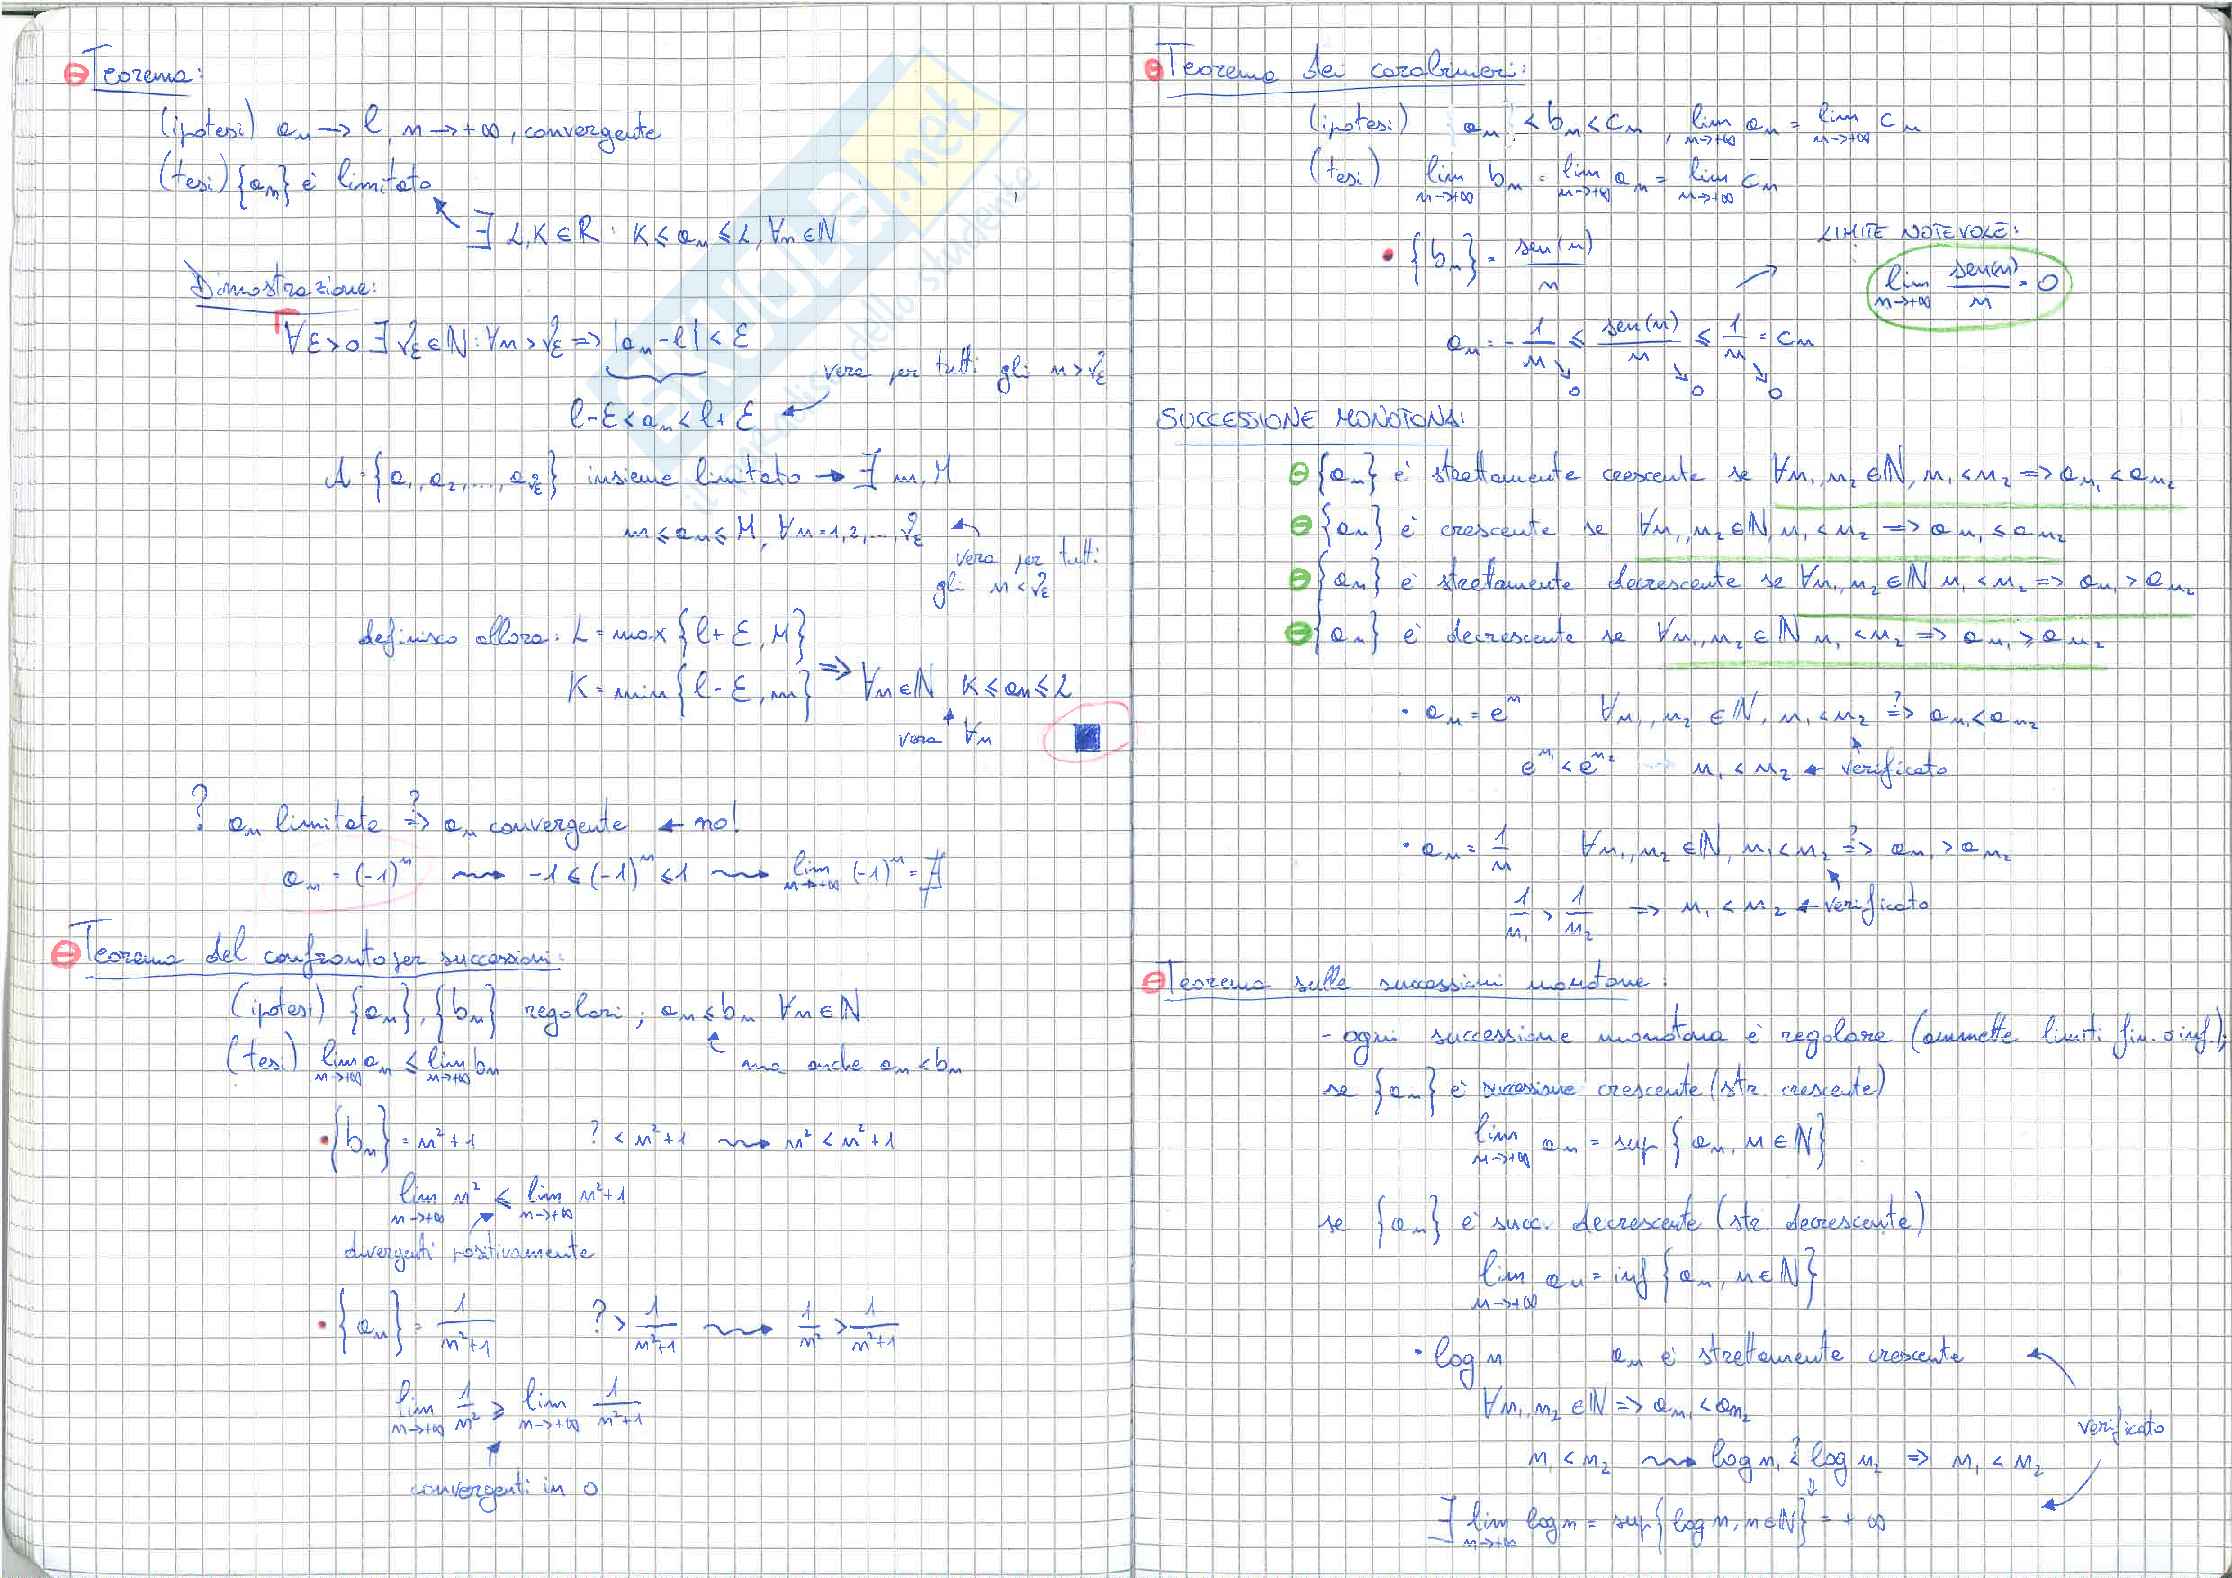 Teorema:
(ipotesi) aₙ → l, n→+∞, convergente
(tesi) {aₙ} è limitato
∃ L,K ∈ R : K ≤ aₙ ≤ L, ∀n ∈ N
Dimostrazione:
∀ε>0 ∃ νε ∈ N : ∀n > νε => |aₙ - l| < ε
vera per tutti gli n > νε
l-ε < aₙ < l+ε
A = {a₁, a₂, ..., aνε} insieme limitato → ∃ m, M
m ≤ aₙ ≤ M, ∀n = 1,2,..., νε
vera per tutti
gli n < νε
definisco allora: L = max {l+ε, M}
K = min {l-ε, m} => ∀n ∈ N K ≤ aₙ ≤ L
vera ∀n
? aₙ limitate ?=> aₙ convergente ← no!
aₙ = (-1)ⁿ ⇝ -1 ≤ (-1)ⁿ ≤ 1 ⇝ lim n→+∞ (-1)ⁿ = ∄
Teorema del confronto per successioni:
(ipotesi) {aₙ}, {bₙ} regolari; aₙ ≤ bₙ ∀n ∈ N
(tesi) lim n→+∞ aₙ ≤ lim n→+∞ bₙ
ma anche aₙ < bₙ
• {bₙ} = n²+1 ? < n²+1 ⇝ n² < n²+1
lim n→+∞ n² ≤ lim n→+∞ n²+1
divergenti positivamente
• {aₙ} = 1/(n²+1) ? > 1/(n²+1) ⇝ 1/n² > 1/(n²+1)
lim n→+∞ 1/n² ≥ lim n→+∞ 1/(n²+1)
convergenti in 0
Teorema dei carabinieri:
(ipotesi) aₙ < bₙ < cₙ, lim n→+∞ aₙ = lim n→+∞ cₙ
(tesi) lim n→+∞ bₙ = lim n→+∞ aₙ = lim n→+∞ cₙ
LIMITE NOTEVOLE:
• {bₙ} = sen(n)/n
lim n→+∞ sen(n)/n = 0
aₙ = -1/n ≤ sen(n)/n ≤ 1/n = cₙ
0 0 0
SUCCESSIONE MONOTONA:
{aₙ} è strettamente crescente se ∀n₁, n₂ ∈ N, n₁ < n₂ => aₙ₁ < aₙ₂
{aₙ} è crescente se ∀n₁, n₂ ∈ N, n₁ < n₂ => aₙ₁ ≤ aₙ₂
{aₙ} è strettamente decrescente se ∀n₁, n₂ ∈ N n₁ < n₂ => aₙ₁ > aₙ₂
{aₙ} è decrescente se ∀n₁, n₂ ∈ N n₁ < n₂ => aₙ₁ ≥ aₙ₂
• aₙ = eⁿ ∀n₁, n₂ ∈ N, n₁ < n₂ ?=> aₙ₁ < aₙ₂
eⁿ¹ < eⁿ² → n₁ < n₂ ← verificato
• aₙ = 1/n ∀n₁, n₂ ∈ N, n₁ < n₂ ?=> aₙ₁ > aₙ₂
1/n₁ > 1/n₂ => n₁ < n₂ ← verificato
Teorema sulle successioni monotone:
- ogni successione monotona è regolare (ammette limiti fin. o inf.);
se {aₙ} è successione crescente (str. crescente)
lim n→+∞ aₙ = sup {aₙ, n ∈ N}
se {aₙ} è succ. decrescente (str. decrescente)
lim n→+∞ aₙ = inf {aₙ, n ∈ N}
• log n aₙ è strettamente crescente
∀n₁, n₂ ∈ N => aₙ₁ < aₙ₂
verificato
n₁ < n₂ ⇝ log n₁ ?< log n₂ => n₁ < n₂
∃ lim n→+∞ log n = sup {log n, n ∈ N} = +∞